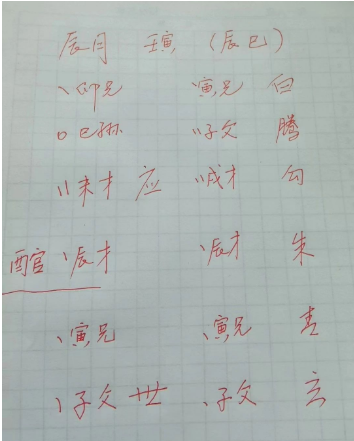 辰月 壬寅 (辰巳)
、卯兄 寅兄 白
0 巳孙 〃子父 腾
〃未才 应 〃戌才 勾
酉官 、辰才 、辰才 朱
、寅兄 、寅兄 青
、子父 世 、子父 玄